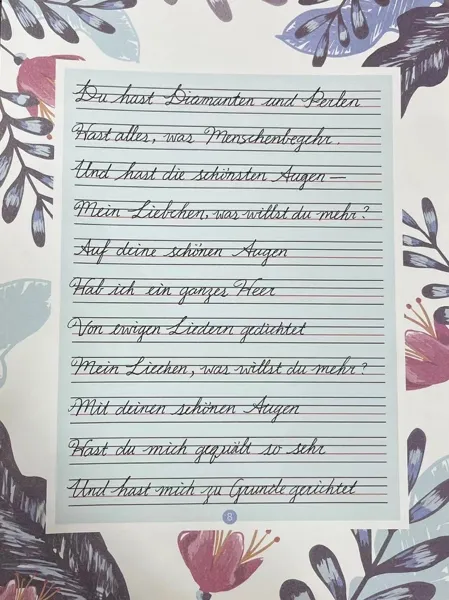 Du hast Diamanten und Perlen
Hast alles, was Menschenbegehr.
Und hast die schönsten Augen —
Mein Liebchen, was willst du mehr?
Auf deine schönen Augen
Hab ich ein ganzes Heer
Von ewigen Liedern gedichtet
Mein Liechen, was willst du mehr?
Mit deinen schönen Augen
Hast du mich gequält so sehr
Und hast mich zu Grunde gerichtet
8